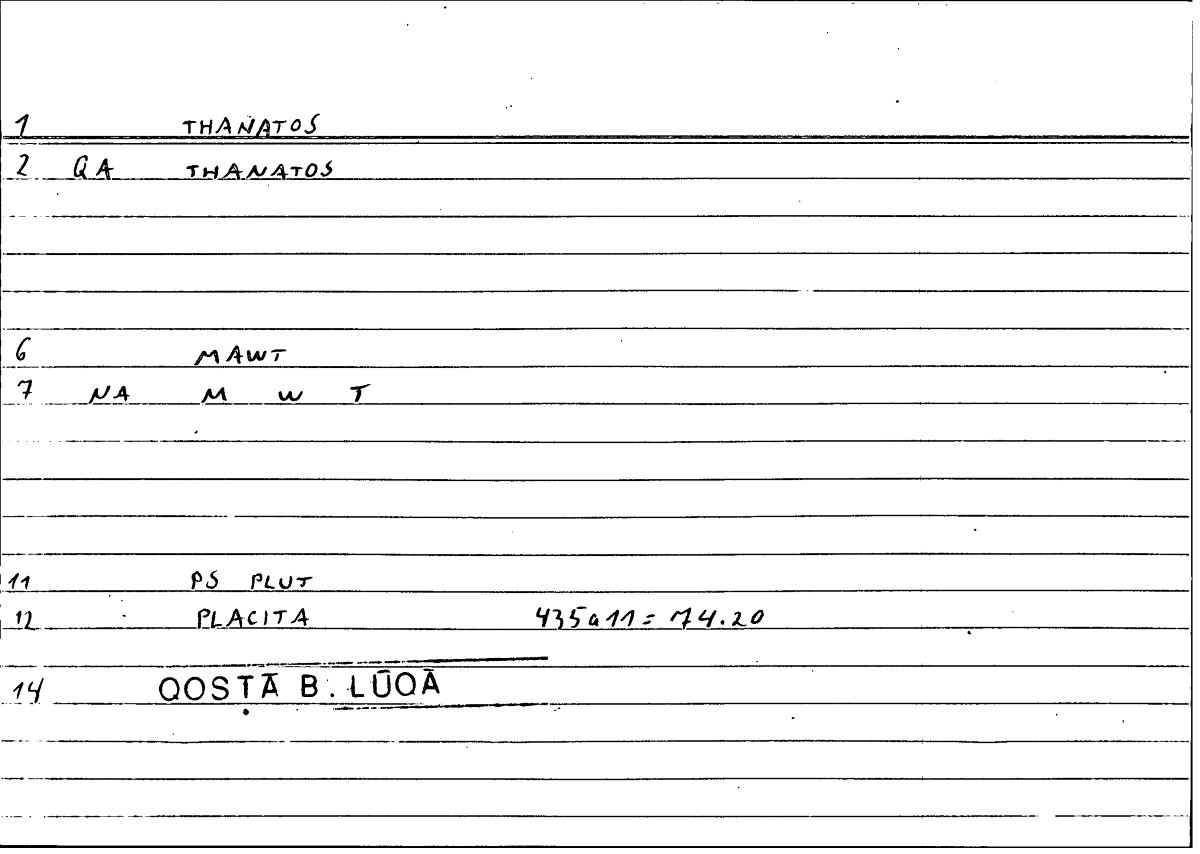 1 THANATOS
2 QA THANATOS
6 MAWT
7 NA M W T
11 PS PLUT
12 PLACITA 435a11 = 74.20
14 QOSṬĀ B. LŪQĀ